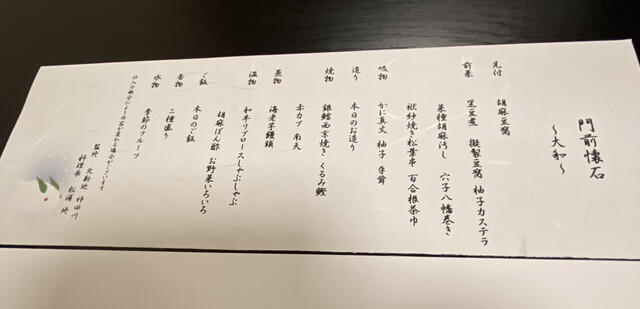 門前懐石
〜大和〜
先付　胡麻豆腐
前菜　黒豆煮　擬製豆腐　柚子カステラ
菜種胡麻汚し　穴子八幡巻き
袱紗焼き松葉串　百合根茶巾
吸物　かに真丈　柚子　茸
造り　本日のお造り
焼物　銀鱈西京焼き　くるみ鰹
赤カブ　南天
蒸物　海老芋饅頭
温物　和牛リブロースしゃぶしゃぶ
胡麻ぽん酢　お野菜いろいろ
ご飯　本日のご飯
香物　二種盛り
水物　季節のフルーツ
仕入の都合により内容が変わる場合がございます
監修　北新地　神田川
料理長　松浦